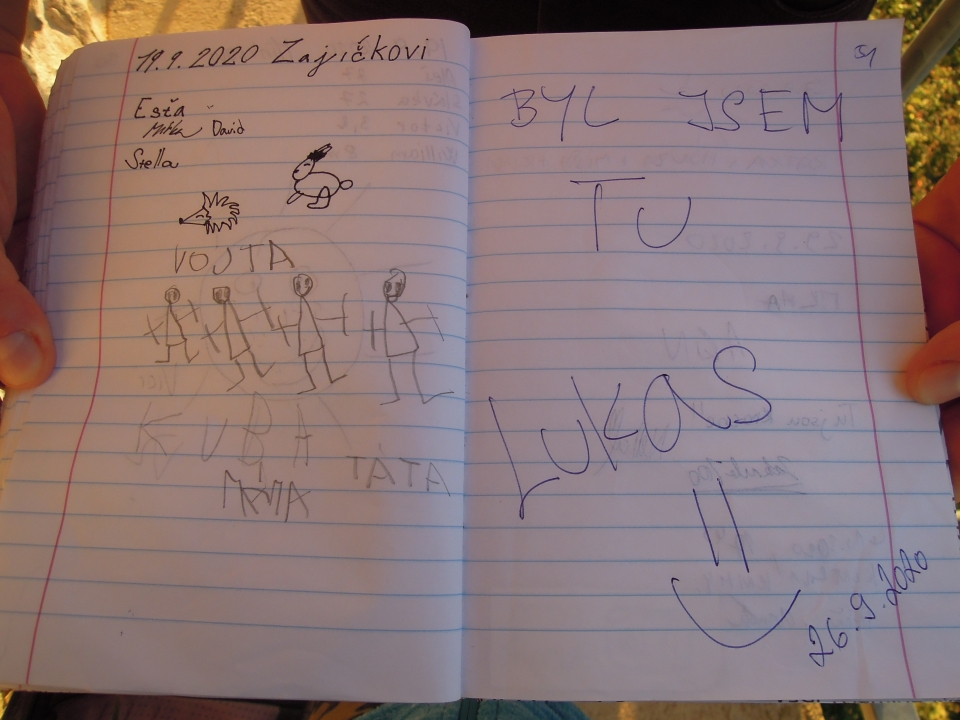 19.9.2020 Zajíčkovi
Esťa
David
Stella
VOJTA
KUBA
TÁTA
51
BYL JSEM
TU
LUKAS
26.9.2020